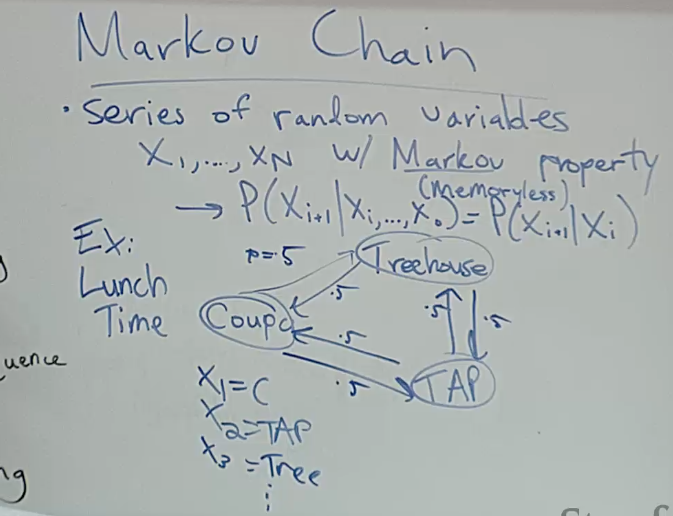 Markov Chain
• Series of random variables
X₁,...,X_N w/ Markov property
(memoryless)
→ P(X_{i+1}|X_i,...,X_0) = P(X_{i+1}|X_i)
Ex:
Lunch
Time
p=.5
Treehouse
.5
Coupa
.5
.5
.5
.5
TAP
X₁=C
X₂=TAP
X₃=Tree
⋮
uence
ng